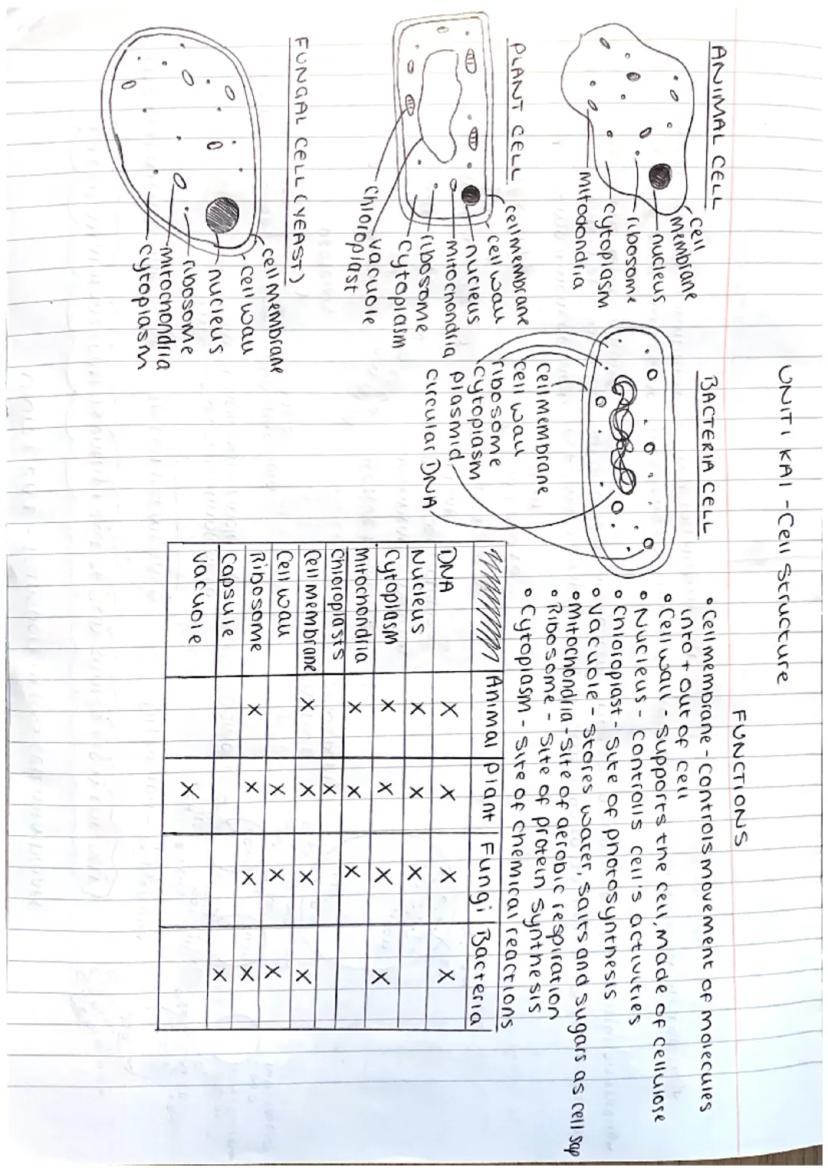 UNIT 1 KA1 - Cell Structure
ANIMAL CELL
cell
membrane
nucleus
ribosome
cytoplasm
mitocondria
PLANT CELL
cell membrane
cell wall
nucleus
mitochondria
ribosome
cytoplasm
vacuole
chloroplast
FUNGAL CELL (YEAST)
cell membrane
cell wall
nucleus
ribosome
mitochondria
cytoplasm
BACTERIA CELL
Cell membrane
cell wall
ribosome
cytoplasm
plasmid
circular DNA
FUNCTIONS
• Cell membrane - controls movement of molecules
into + out of cell
• Cell wall - supports the cell, made of cellulose
• Nucleus - controlls cell's activities
• Chloroplast - site of photosynthesis
• Vacuole - Stores water, salts and sugars as cell sap
• Mitochondria - Site of aerobic respiration
• Ribosome - Site of protein synthesis
• Cytoplasm - Site of chemical reactions
Animal Plant Fungi Bacteria
DNA X X X X
Nucleus X X X
Cytoplasm X X X X
Mitochondria X X X
Chloroplasts X
Cell membrane X X X X
Cell wall X X X
Ribosome X X X X
Capsule X
Vacuole X